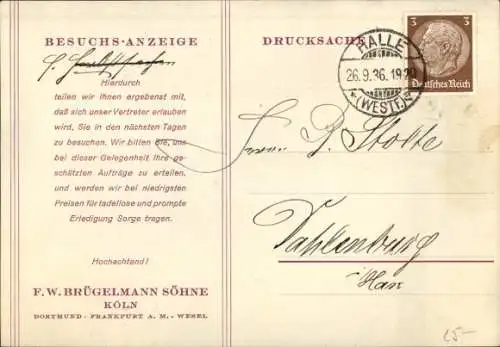 BESUCHS-ANZEIGE
Hierdurch
teilen wir Ihnen ergebenst mit,
daß sich unser Vertreter erlauben
wird, Sie in den nächsten Tagen
zu besuchen. Wir bitten Sie, uns
bei dieser Gelegenheit Ihre ge-
schätzten Aufträge zu erteilen,
und werden wir bei niedrigsten
Preisen für tadellose und prompte
Erledigung Sorge tragen.
Hochachtend!
F. W. BRÜGELMANN SÖHNE
KÖLN
DORTMUND - FRANKFURT A. M. - WESEL
DRUCKSACHE
HALLE
26.9.36.19
(WESTF.)
3 3
Deutsches Reich
Herrn P. Stolte
Dahlenburg
Han
25-